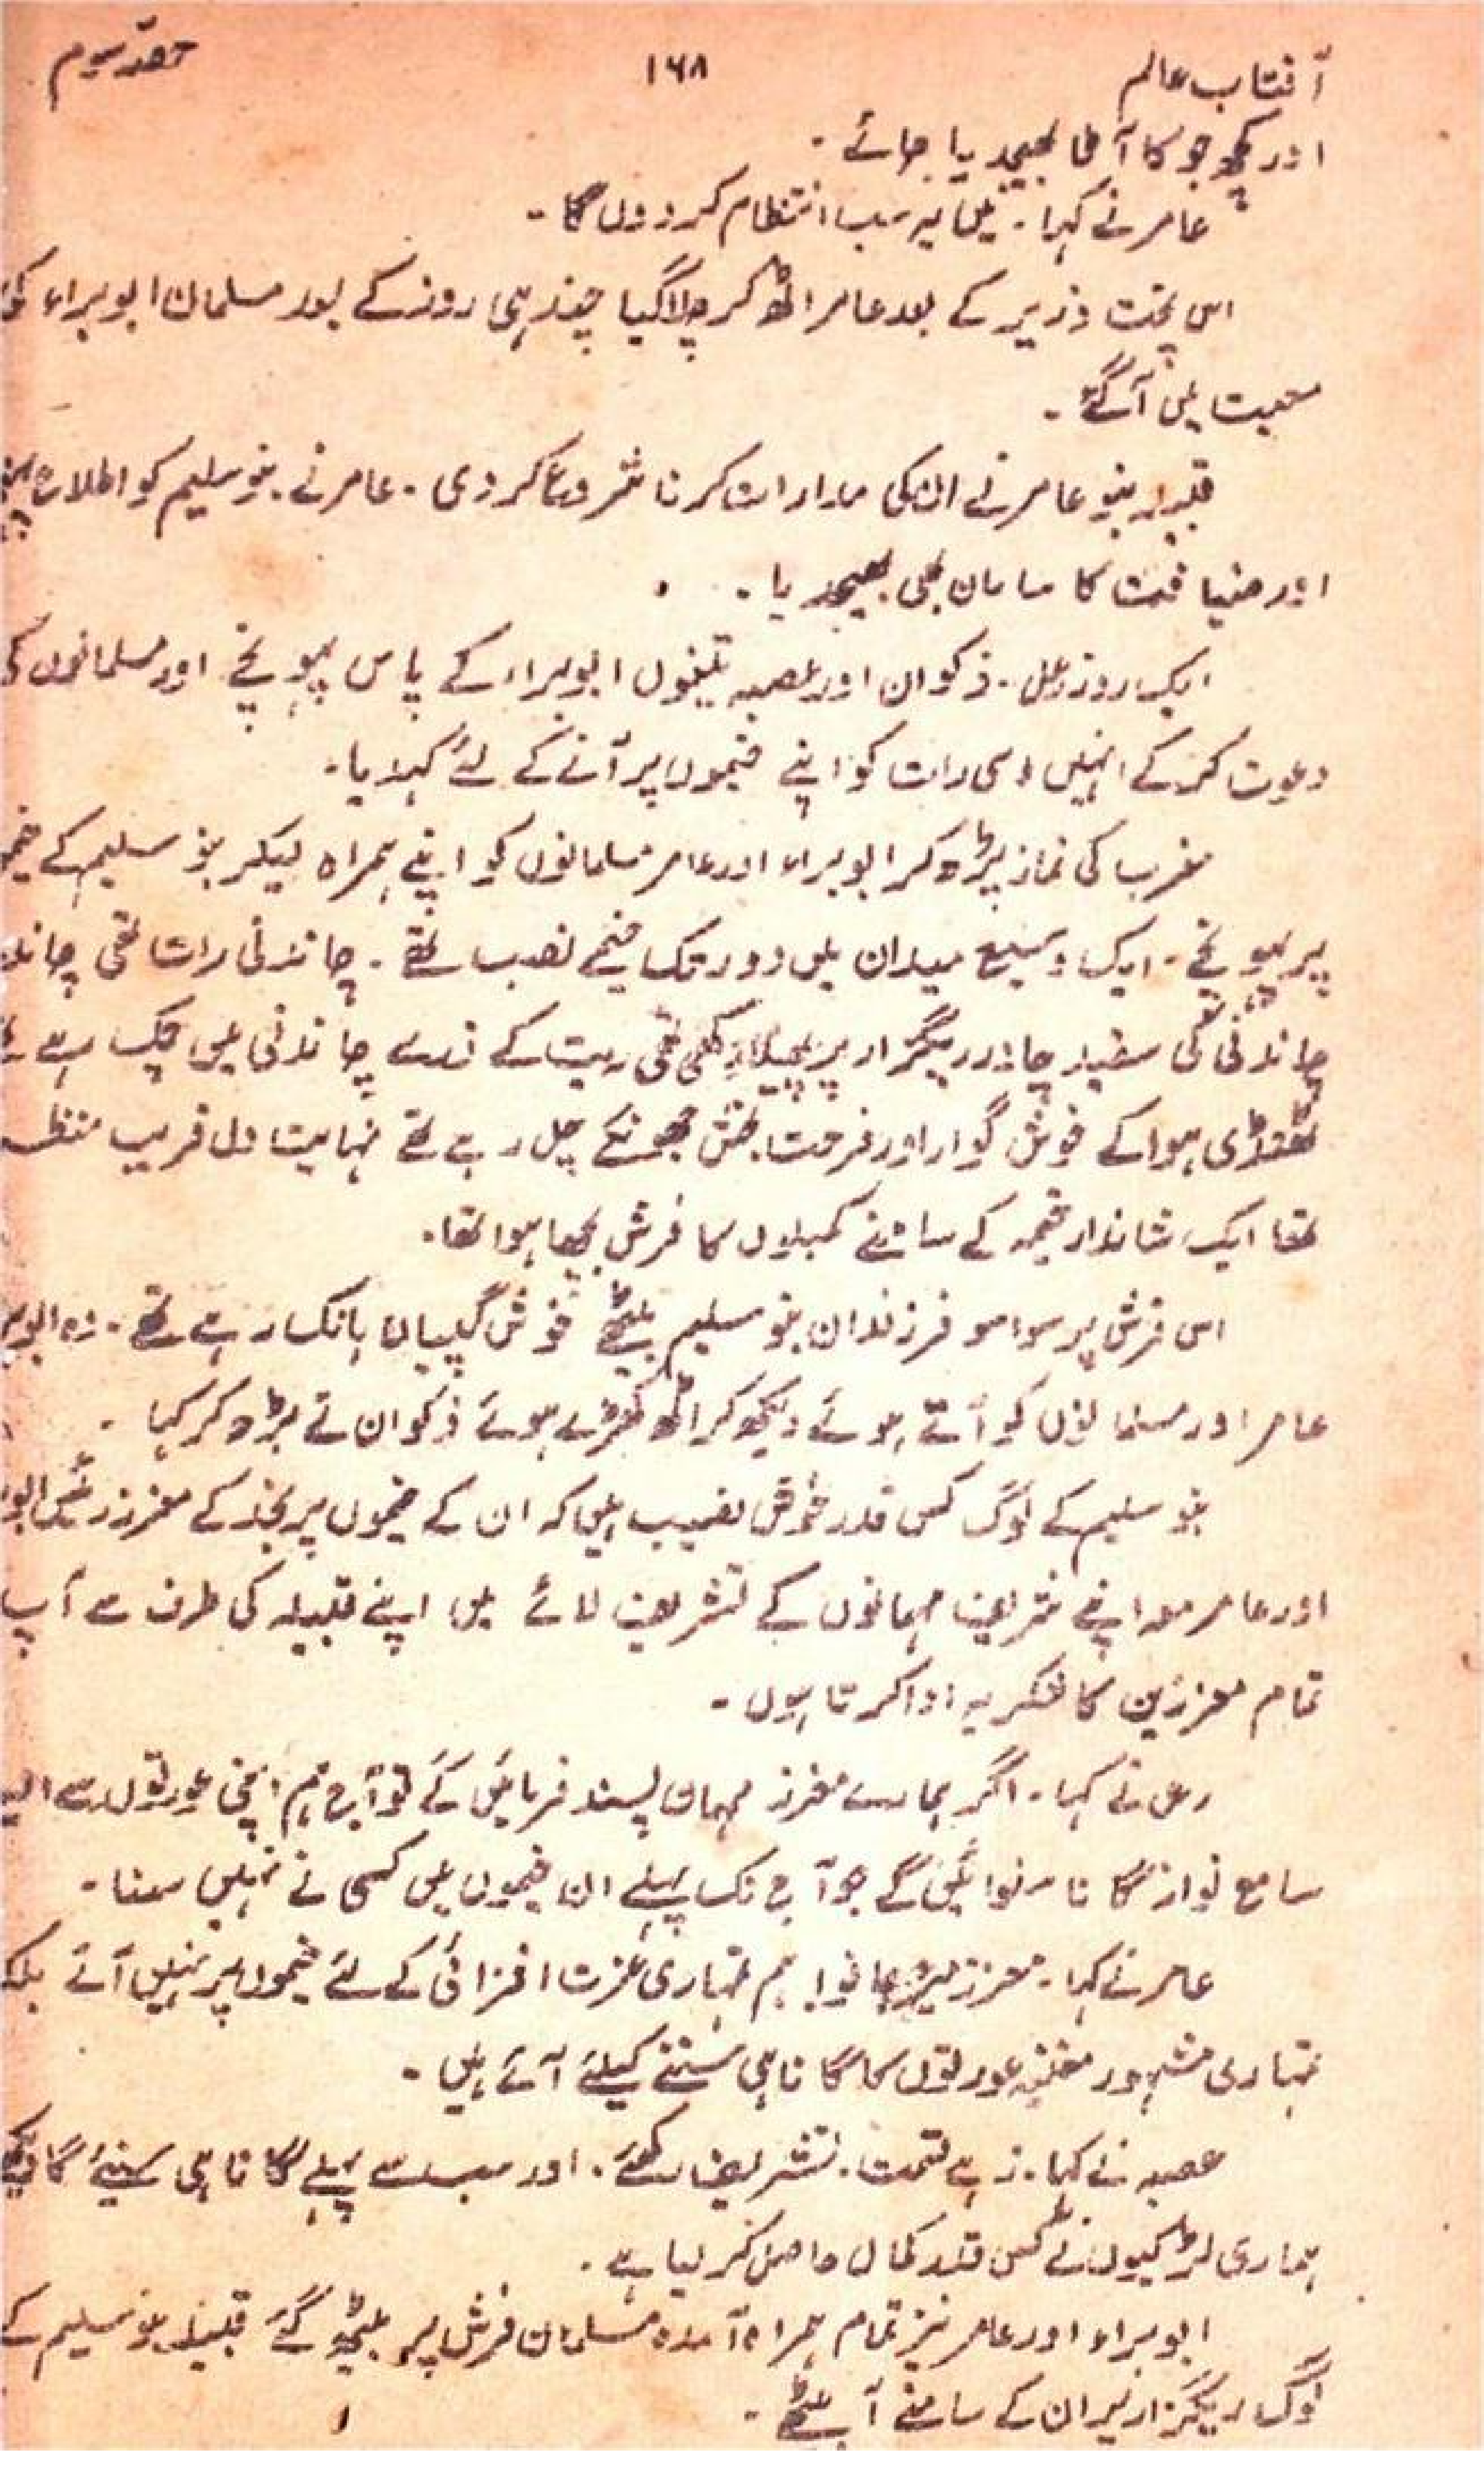 آفتاب عالم ۱۶۸ حصہ سوم
اور کچھ جو کا آٹا بھیجدیا جائے۔
عامر نے کہا۔ میں یہ سب انتظام کر دوں گا۔
اس پخت و زیر کے بعد عامر اٹھ کر چلا گیا چند ہی روز کے بعد مسلمان ابو براء کی
معیت میں آ گئے۔
قبیلہ بنو عامر نے ان کی مدارات کرنا شروع کر دی۔ عامر نے بنو سلیم کو اطلاع
اور ضیافت کا سامان بھی بھیجدیا۔
ایک روز رعل۔ ذکوان اور عصیہ تینوں ابو براء کے پاس پہونچے اور مسلمانوں کی
دعوت کر کے انہیں اسی رات کو اپنے خیموں پر آنے کے لئے کہدیا۔
مغرب کی نماز پڑھ کر ابو براء اور عامر مسلمانوں کو اپنے ہمراہ لیکر بنو سلیم کے
پر پہونچے۔ ایک وسیع میدان میں دور تک خیمے نصب تھے۔ چاندنی رات تھی
چاندنی کی سفید چادر ریگزار پر تھی ریت کے ذرے چاندنی میں چمک رہے
ٹھنڈی ہوا کے خوش گوار اور فرحت بخش جھونکے چل رہے تھے نہایت دل فریب منظر
تھا ایک شاندار خیمہ کے سامنے کمبلوں کا فرش بچھا ہوا تھا۔
اس فرش پر سوا سو فرزندان بنو سلیم بیٹھے خوش گپیاں ہانک رہے تھے۔ وہ
عامر اور مسلمانوں کو آتے ہوئے دیکھ کر اٹھ کھڑے ہوئے ذکوان نے بڑھ کر کہا۔
بنو سلیم کے لوگ کس قدر خوش نصیب ہیں کہ ان کے خیموں پر نجد کے معزز رئیس
اور عامر معہ اپنے شریف مہمانوں کے تشریف لائے میں اپنے قبیلہ کی طرف سے آپ
تمام معززین کا شکریہ ادا کرتا ہوں۔
رعل نے کہا۔ اگر ہمارے معزز مہمان پسند فرمائیں گے تو آج ہم اپنی عورتوں سے
سامع نواز گانا سنوائیں گے جو آج تک پہلے ان خیموں میں کسی نے نہیں سنا۔
عامر نے کہا۔ معزز میزبانو! ہم تمہاری عزت افزائی کے لئے خیموں پر نہیں آئے بلکہ
تمہاری مشہور مغنیہ عورتوں کا گانا ہی سننے کیلئے آئے ہیں۔
عصیہ نے کہا۔ زہے قسمت۔ تشریف رکھئے۔ اور سب سے پہلے گانا ہی سنیئے گا
ہماری لڑکیوں نے کس قدر کمال حاصل کر لیا ہے۔
ابو براء اور عامر نیز تمام ہمراہ آمدہ مسلمان فرش پر بیٹھ گئے قبیلہ بنو سلیم کے
لوگ ریگزار پر ان کے سامنے آ بیٹھے۔